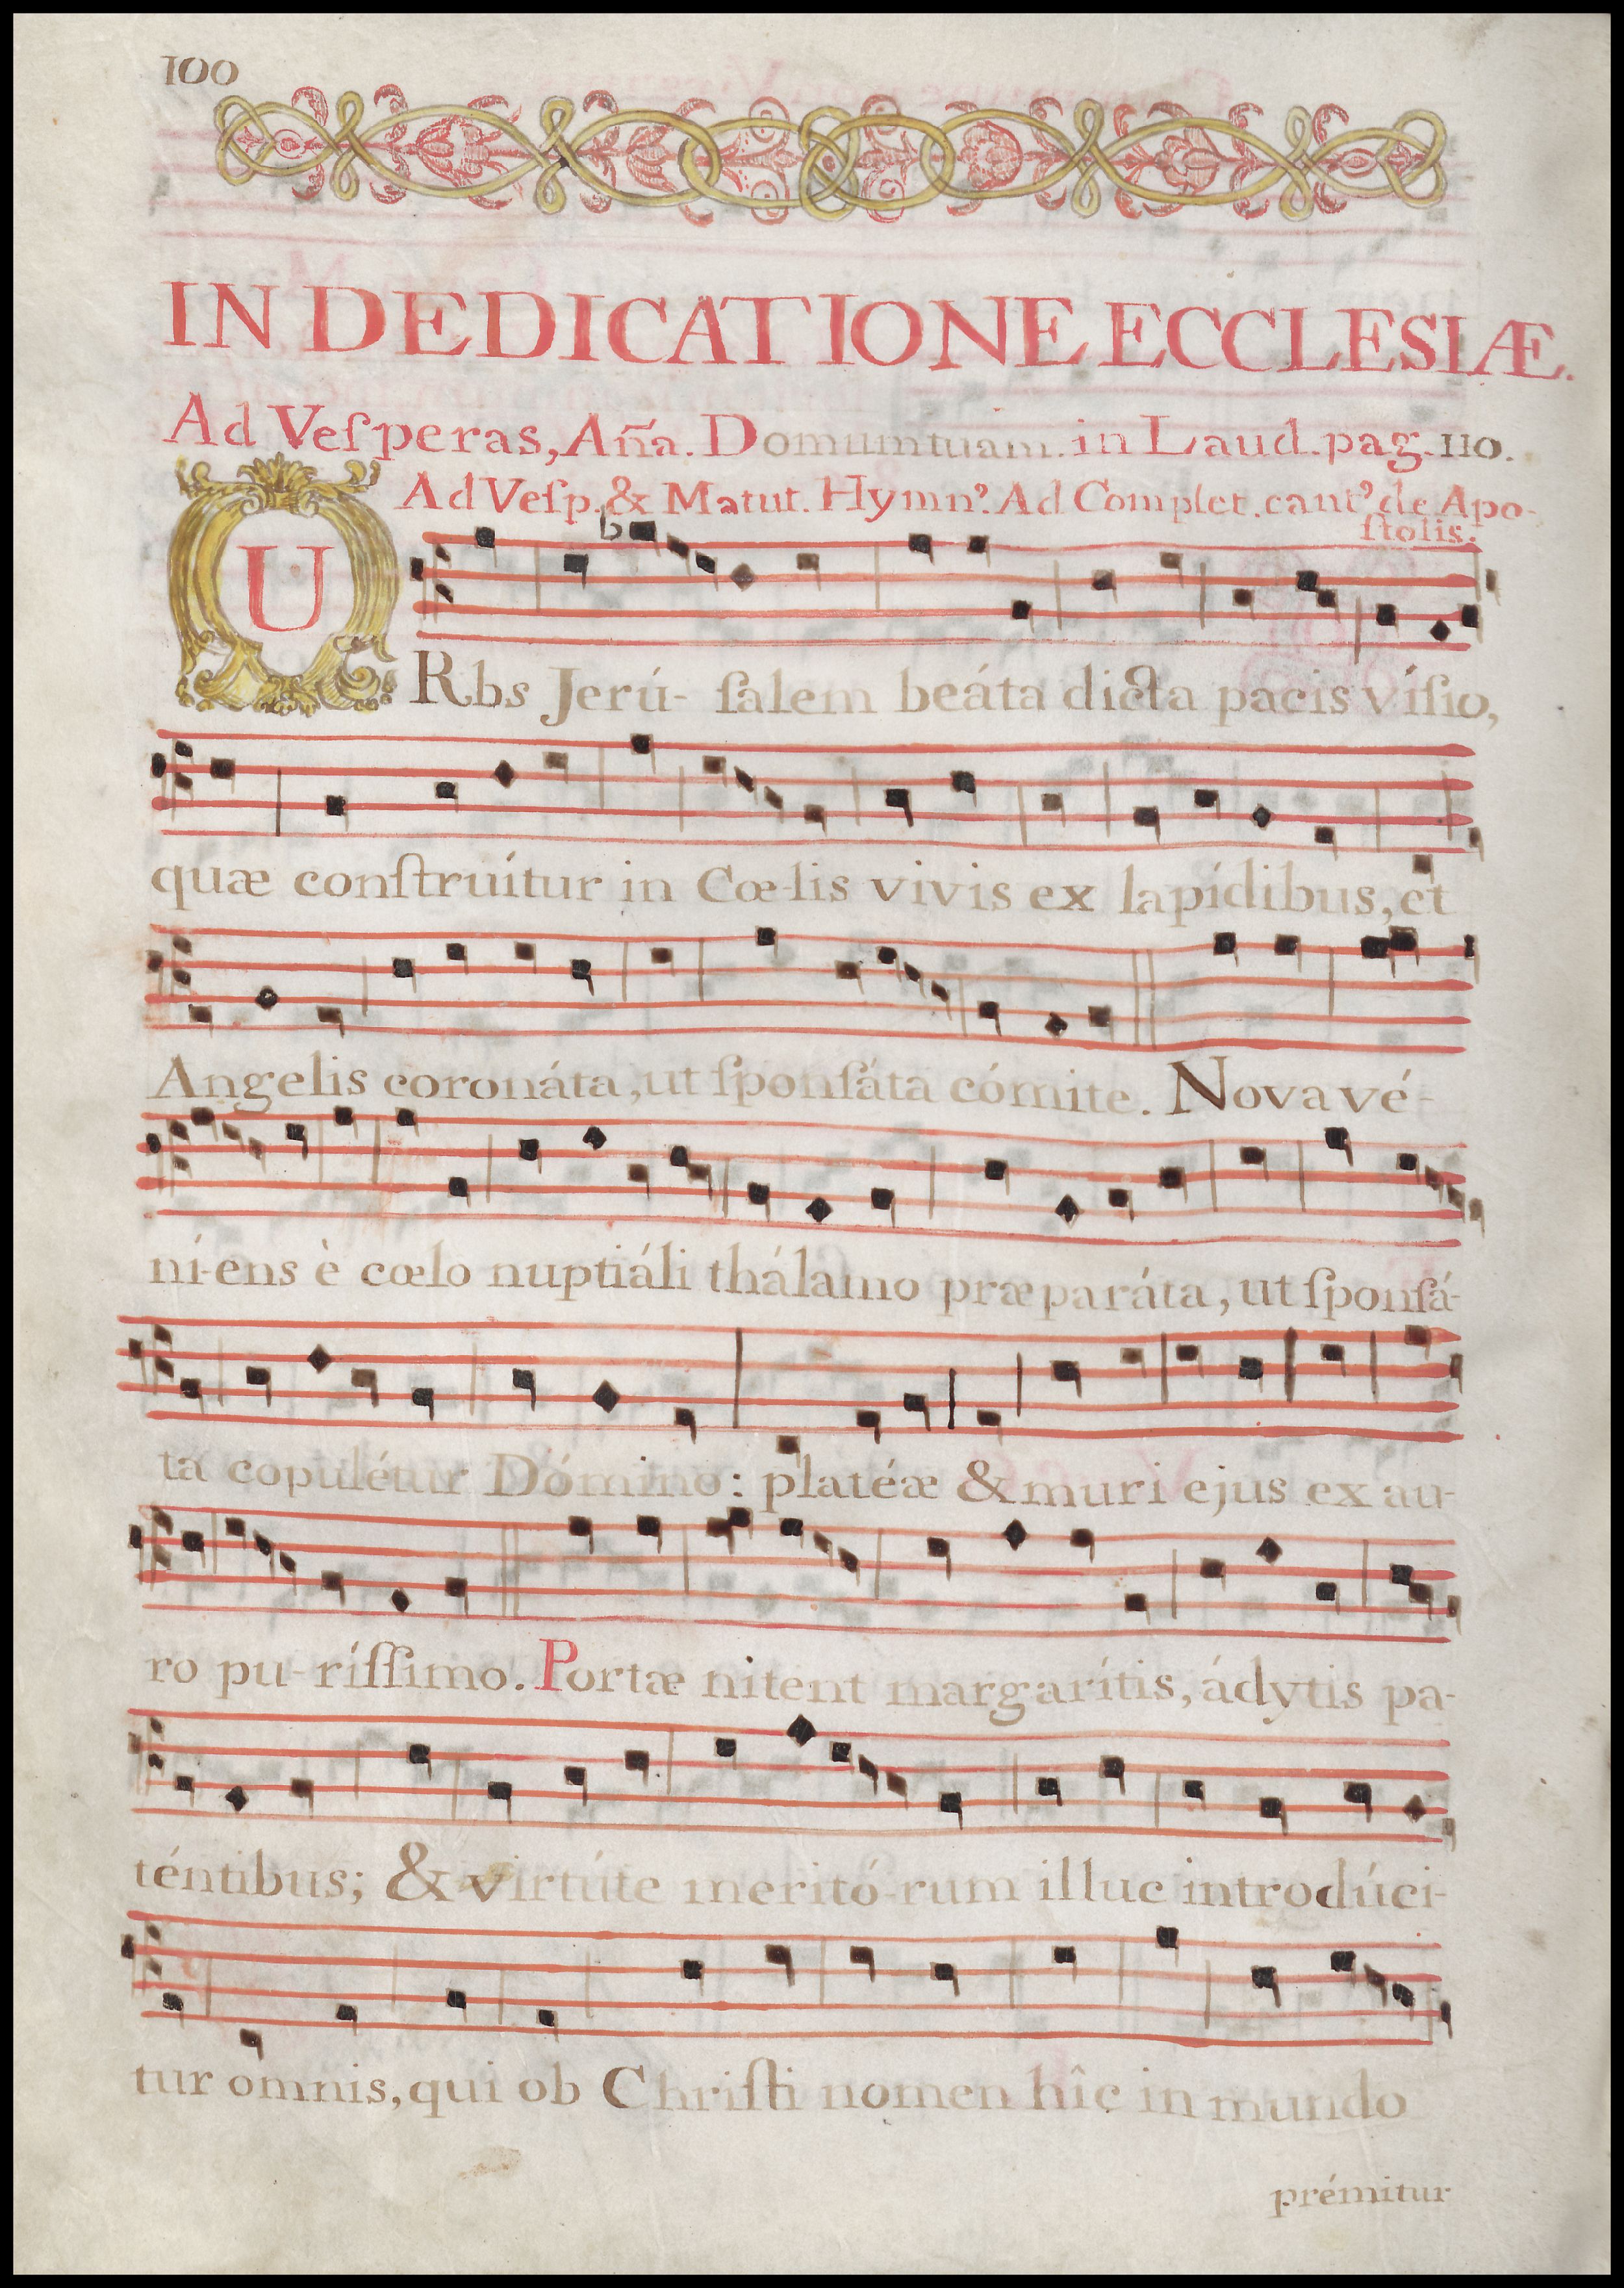 100
IN DEDICATIONE ECCLESIÆ.
Ad Veſperas, Aña. Domum tuam. in Laud. pag. 110.
Ad Veſp. & Matut. Hymn⁹. Ad Complet. cant⁹ de Apo-
ſtolis.
URbs Jerú- ſalem beáta dicta pacis víſio,
quæ conſtruítur in Cœ-lis vivis ex lapídibus, et
Angelis coronáta, ut ſponſáta cómite. Nova vé-
ní-ens è cœlo nuptiáli thálamo præparáta, ut ſponſá-
ta copulétur Dómino: platéæ & muri ejus ex au-
ro pu-ríſſimo. Portæ nitent margarítis, ádytis pa-
téntibus; & virtúte meritó-rum illuc introdúci-
tur omnis, qui ob Chriſti nomen hîc in mundo
prémitur